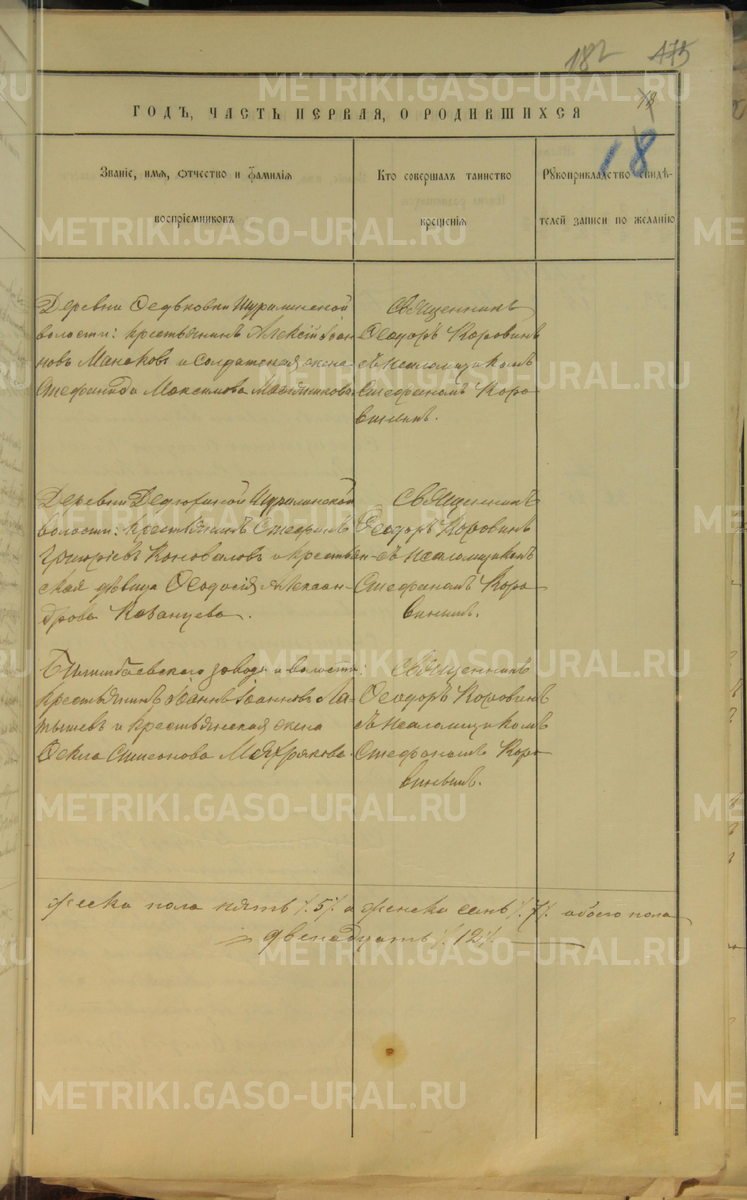 182 475
18
ГОДЪ, ЧАСТЬ ПЕРВАЯ, О РОДИВШИХСЯ
18
Званіе, имя, отчество и фамилія
воспріемниковъ
Кто совершалъ таинство
крещенія
Рукоприкладство свидѣ-
телей записи по желанію
Деревни Федьковки Шуралинской
волости: крестьянинъ Алексій Іоан
новъ Манаковъ и солдатская жена
Стефанида Максимова
Священникъ
Ѳеодоръ Коровинъ
съ псаломщикомъ
Стефаномъ Коро
винымъ.
Деревни Шуралинской
волости: крестьянинъ Стефанъ
Григорьевъ Коноваловъ и крестьян-
ская дѣвица Ѳеодосія Алексан-
дрова Казанцева.
Священникъ
Ѳеодоръ Коровинъ
съ псаломщикомъ
Стефаномъ Коро
винымъ.
Билимбаевского завода и волости:
крестьянинъ Іоаннъ Іоанновъ Ла-
тышевъ и крестьянская жена
Ѳекла Симеонова Мохрякова.
Священникъ
Ѳеодоръ Коровинъ
съ псаломщикомъ
Стефаномъ Коро
винымъ.
жеска пола пять /.5/. а женска семь /.7/. обоего пола
двенадцать /.12/.
METRIKI.GASO-URAL.RU